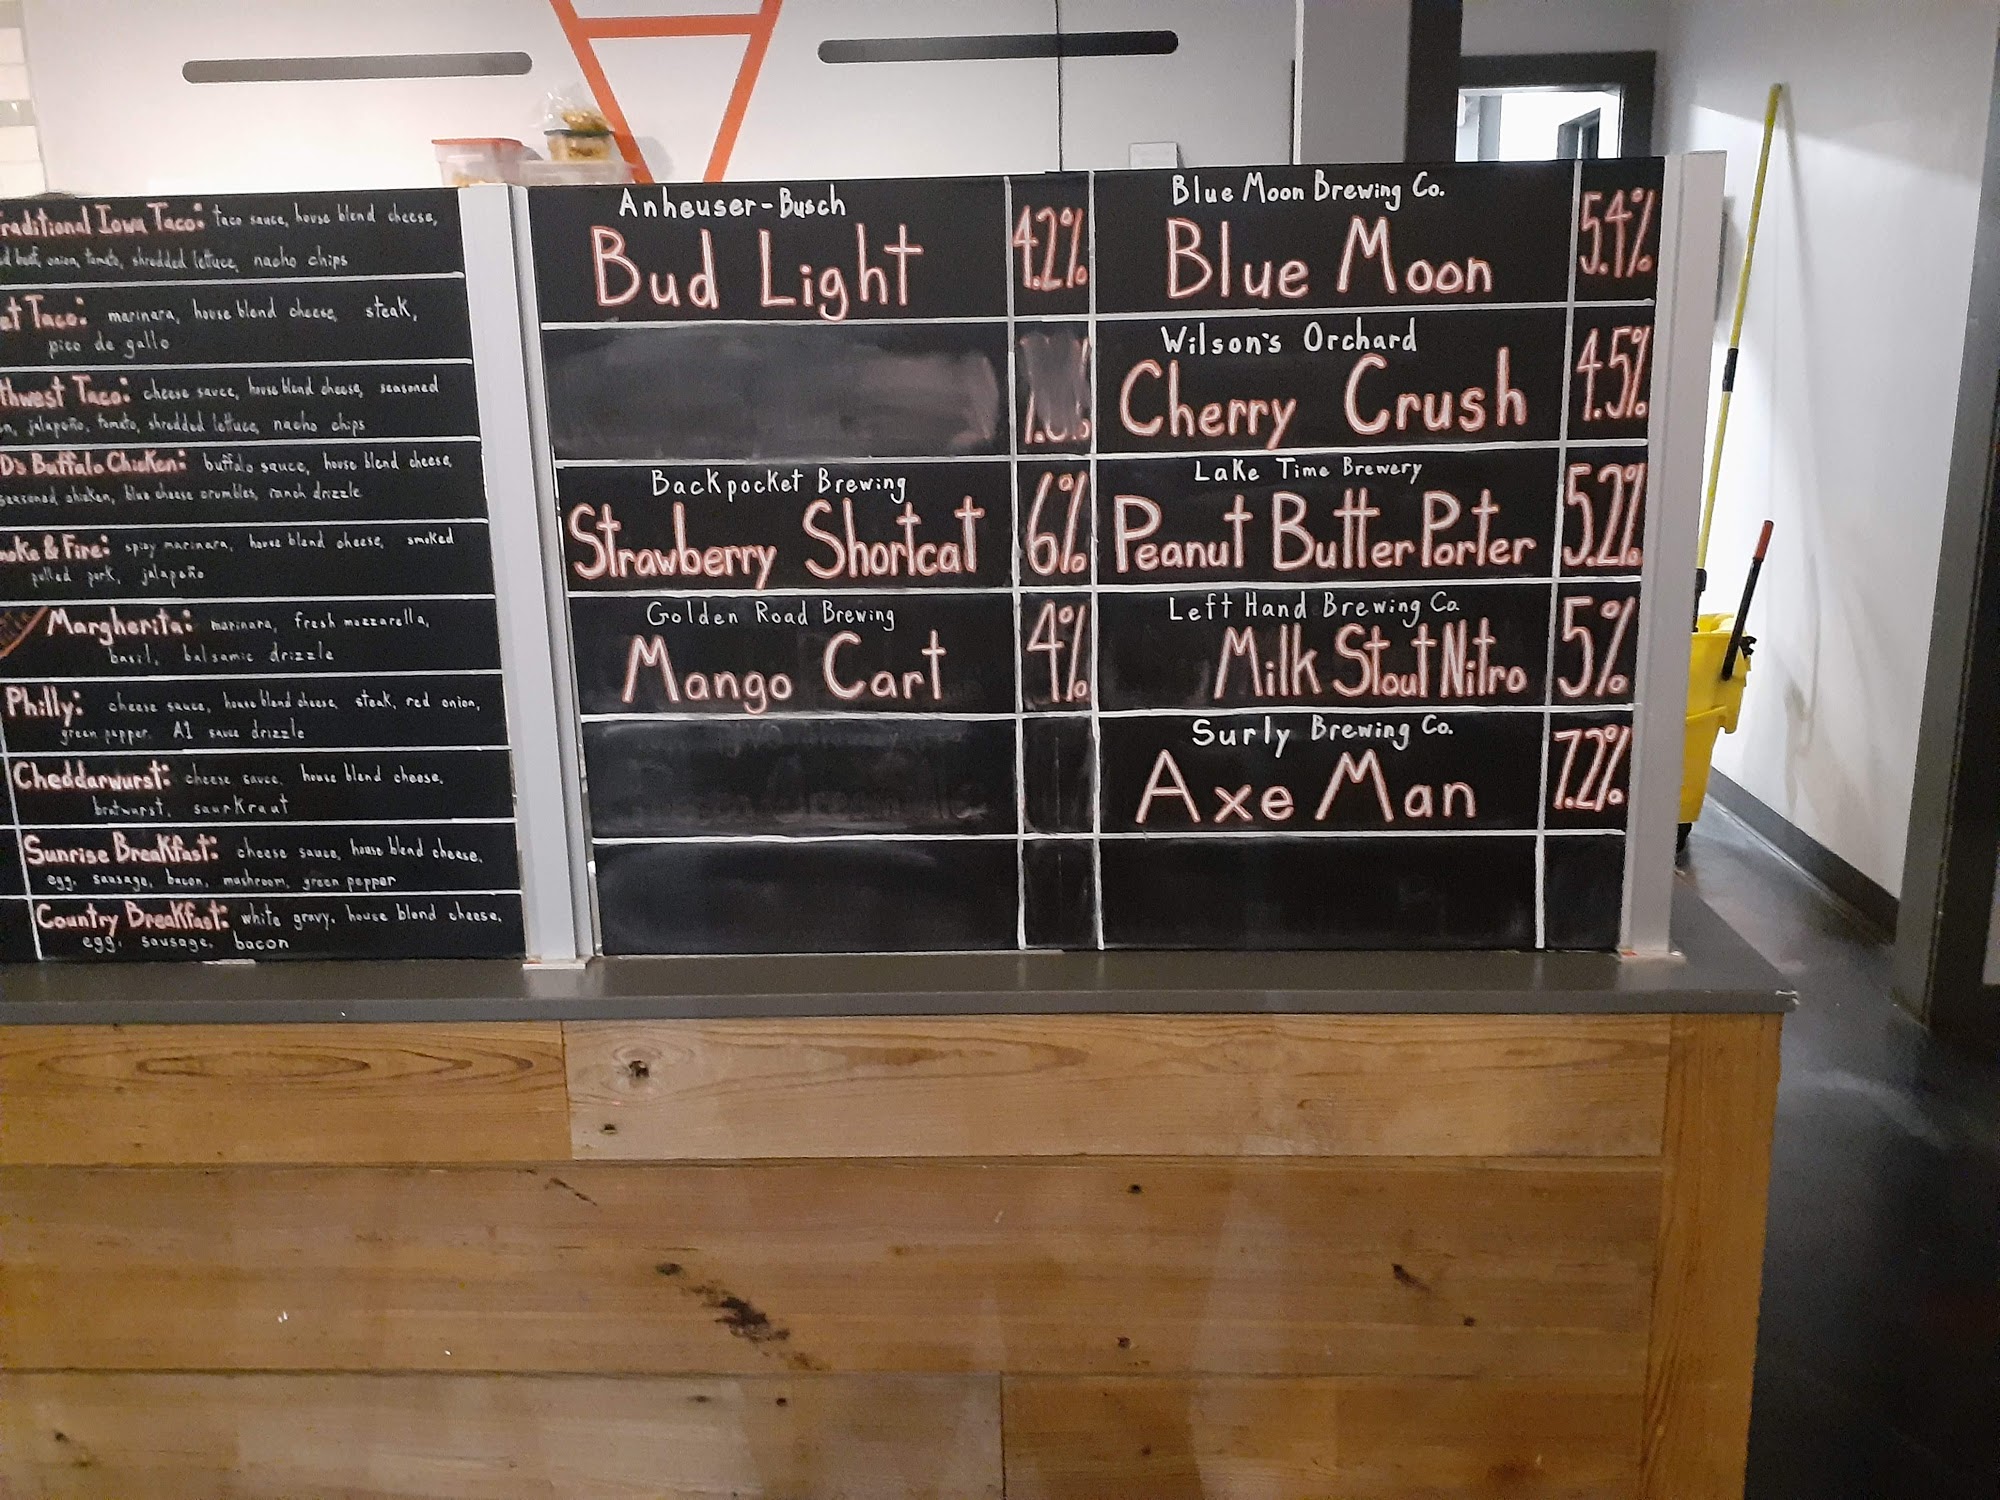 Traditional Iowa Taco: taco sauce, house blend cheese,
beef, onion, tomato, shredded lettuce, nacho chips
Taco: marinara, house blend cheese, steak,
pico de gallo
Taco: cheese sauce, house blend cheese, seasoned
jalapeño, tomato, shredded lettuce, nacho chips
Buffalo Chicken: buffalo sauce, house blend cheese,
seasoned chicken, blue cheese crumbles, ranch drizzle
& Fire: spicy marinara, house blend cheese, smoked
pulled pork, jalapeño
Margherita: marinara, fresh mozzarella,
basil, balsamic drizzle
Philly: cheese sauce, house blend cheese, steak, red onion,
green pepper. A1 sauce drizzle
Cheddarwurst: cheese sauce, house blend cheese,
bratwurst, saurkraut
Sunrise Breakfast: cheese sauce, house blend cheese,
egg, sausage, bacon, mushroom, green pepper
Country Breakfast: white gravy, house blend cheese,
egg, sausage, bacon
Anheuser-Busch
Bud Light 4.2%
Backpocket Brewing
Strawberry Shortcat 6%
Golden Road Brewing
Mango Cart 4%
Blue Moon Brewing Co.
Blue Moon 5.4%
Wilson's Orchard
Cherry Crush 4.5%
Lake Time Brewery
Peanut Butter Porter 5.2%
Left Hand Brewing Co.
Milk Stout Nitro 5%
Surly Brewing Co.
Axe Man 7.2%